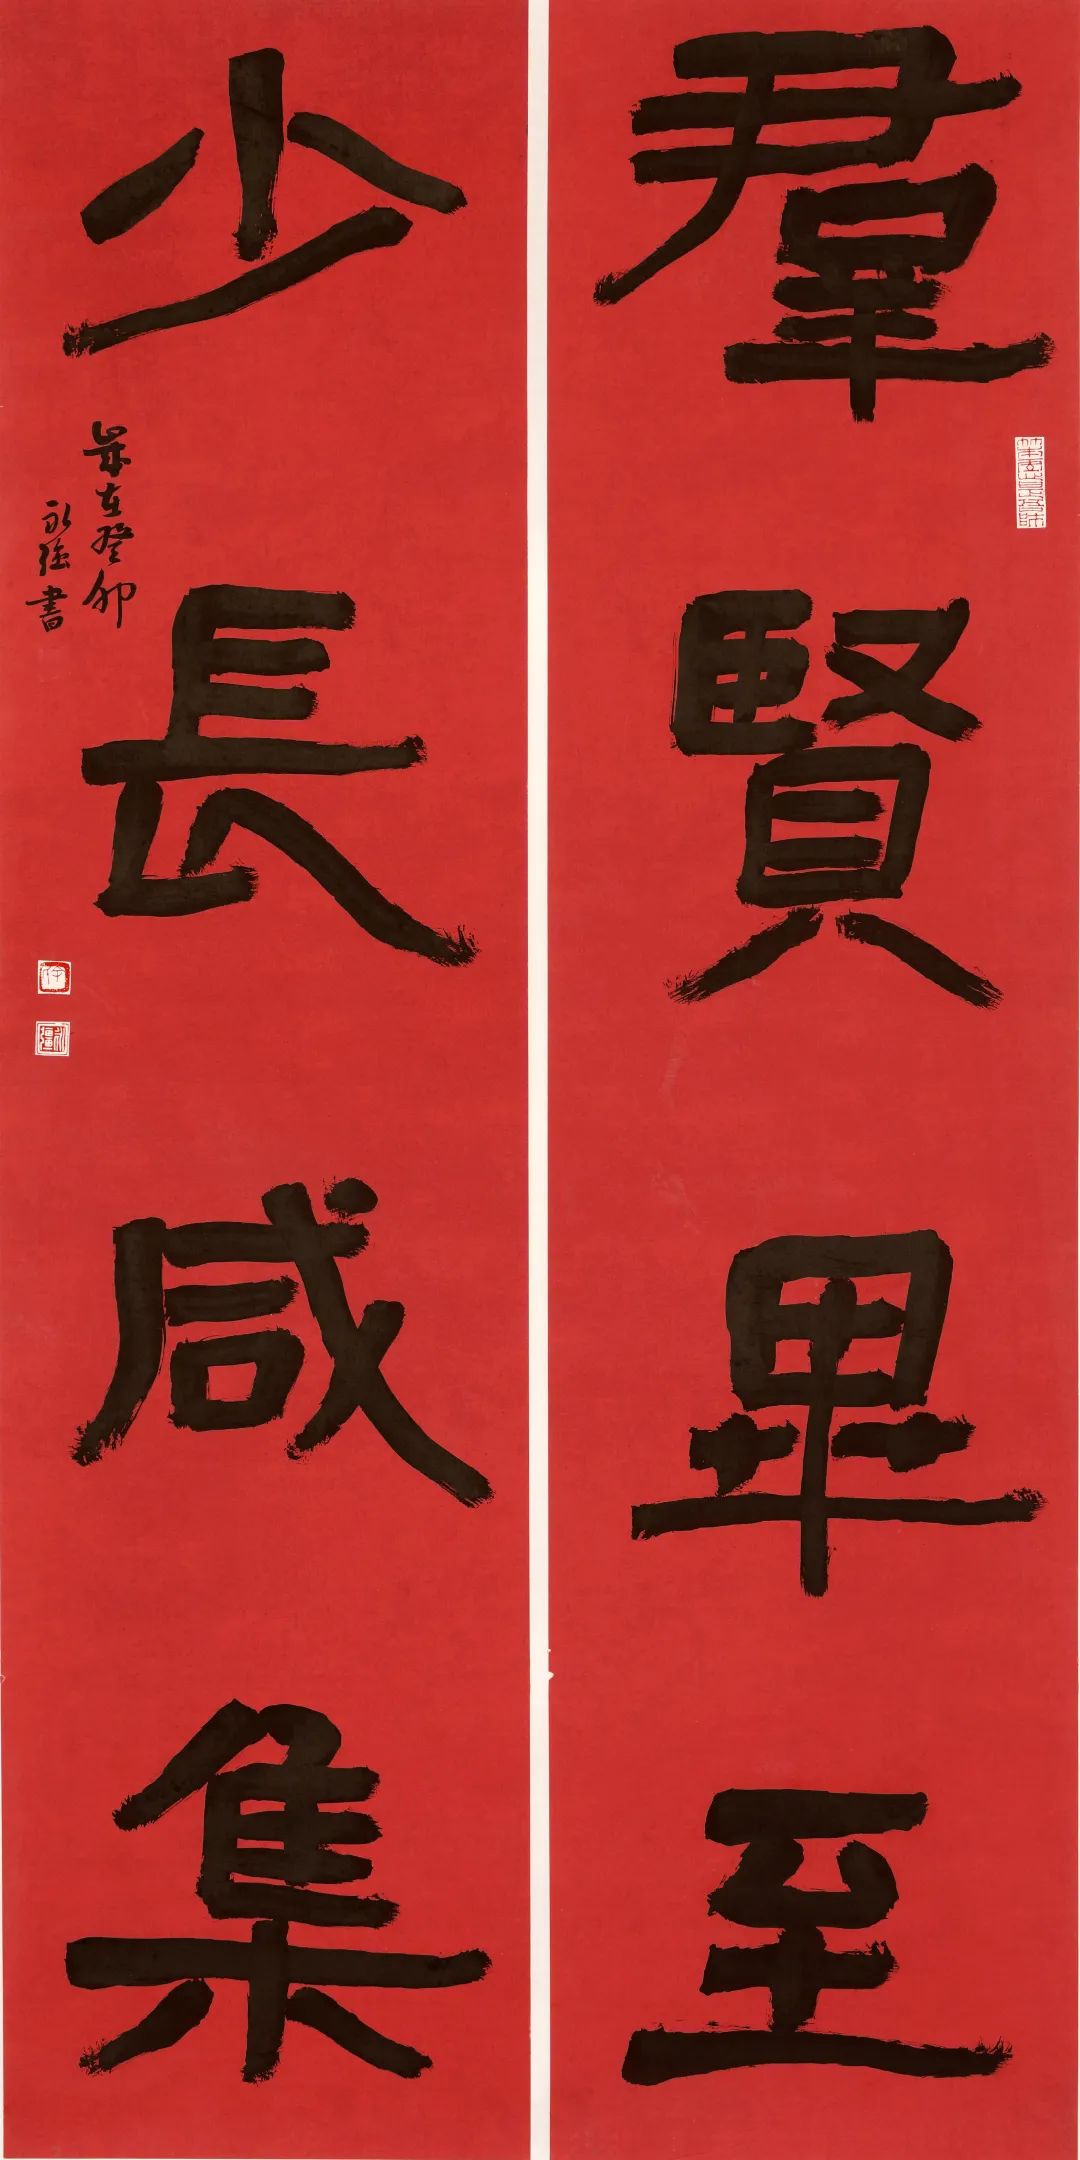 羣賢畢至
少長咸集
歲在癸卯
永強書